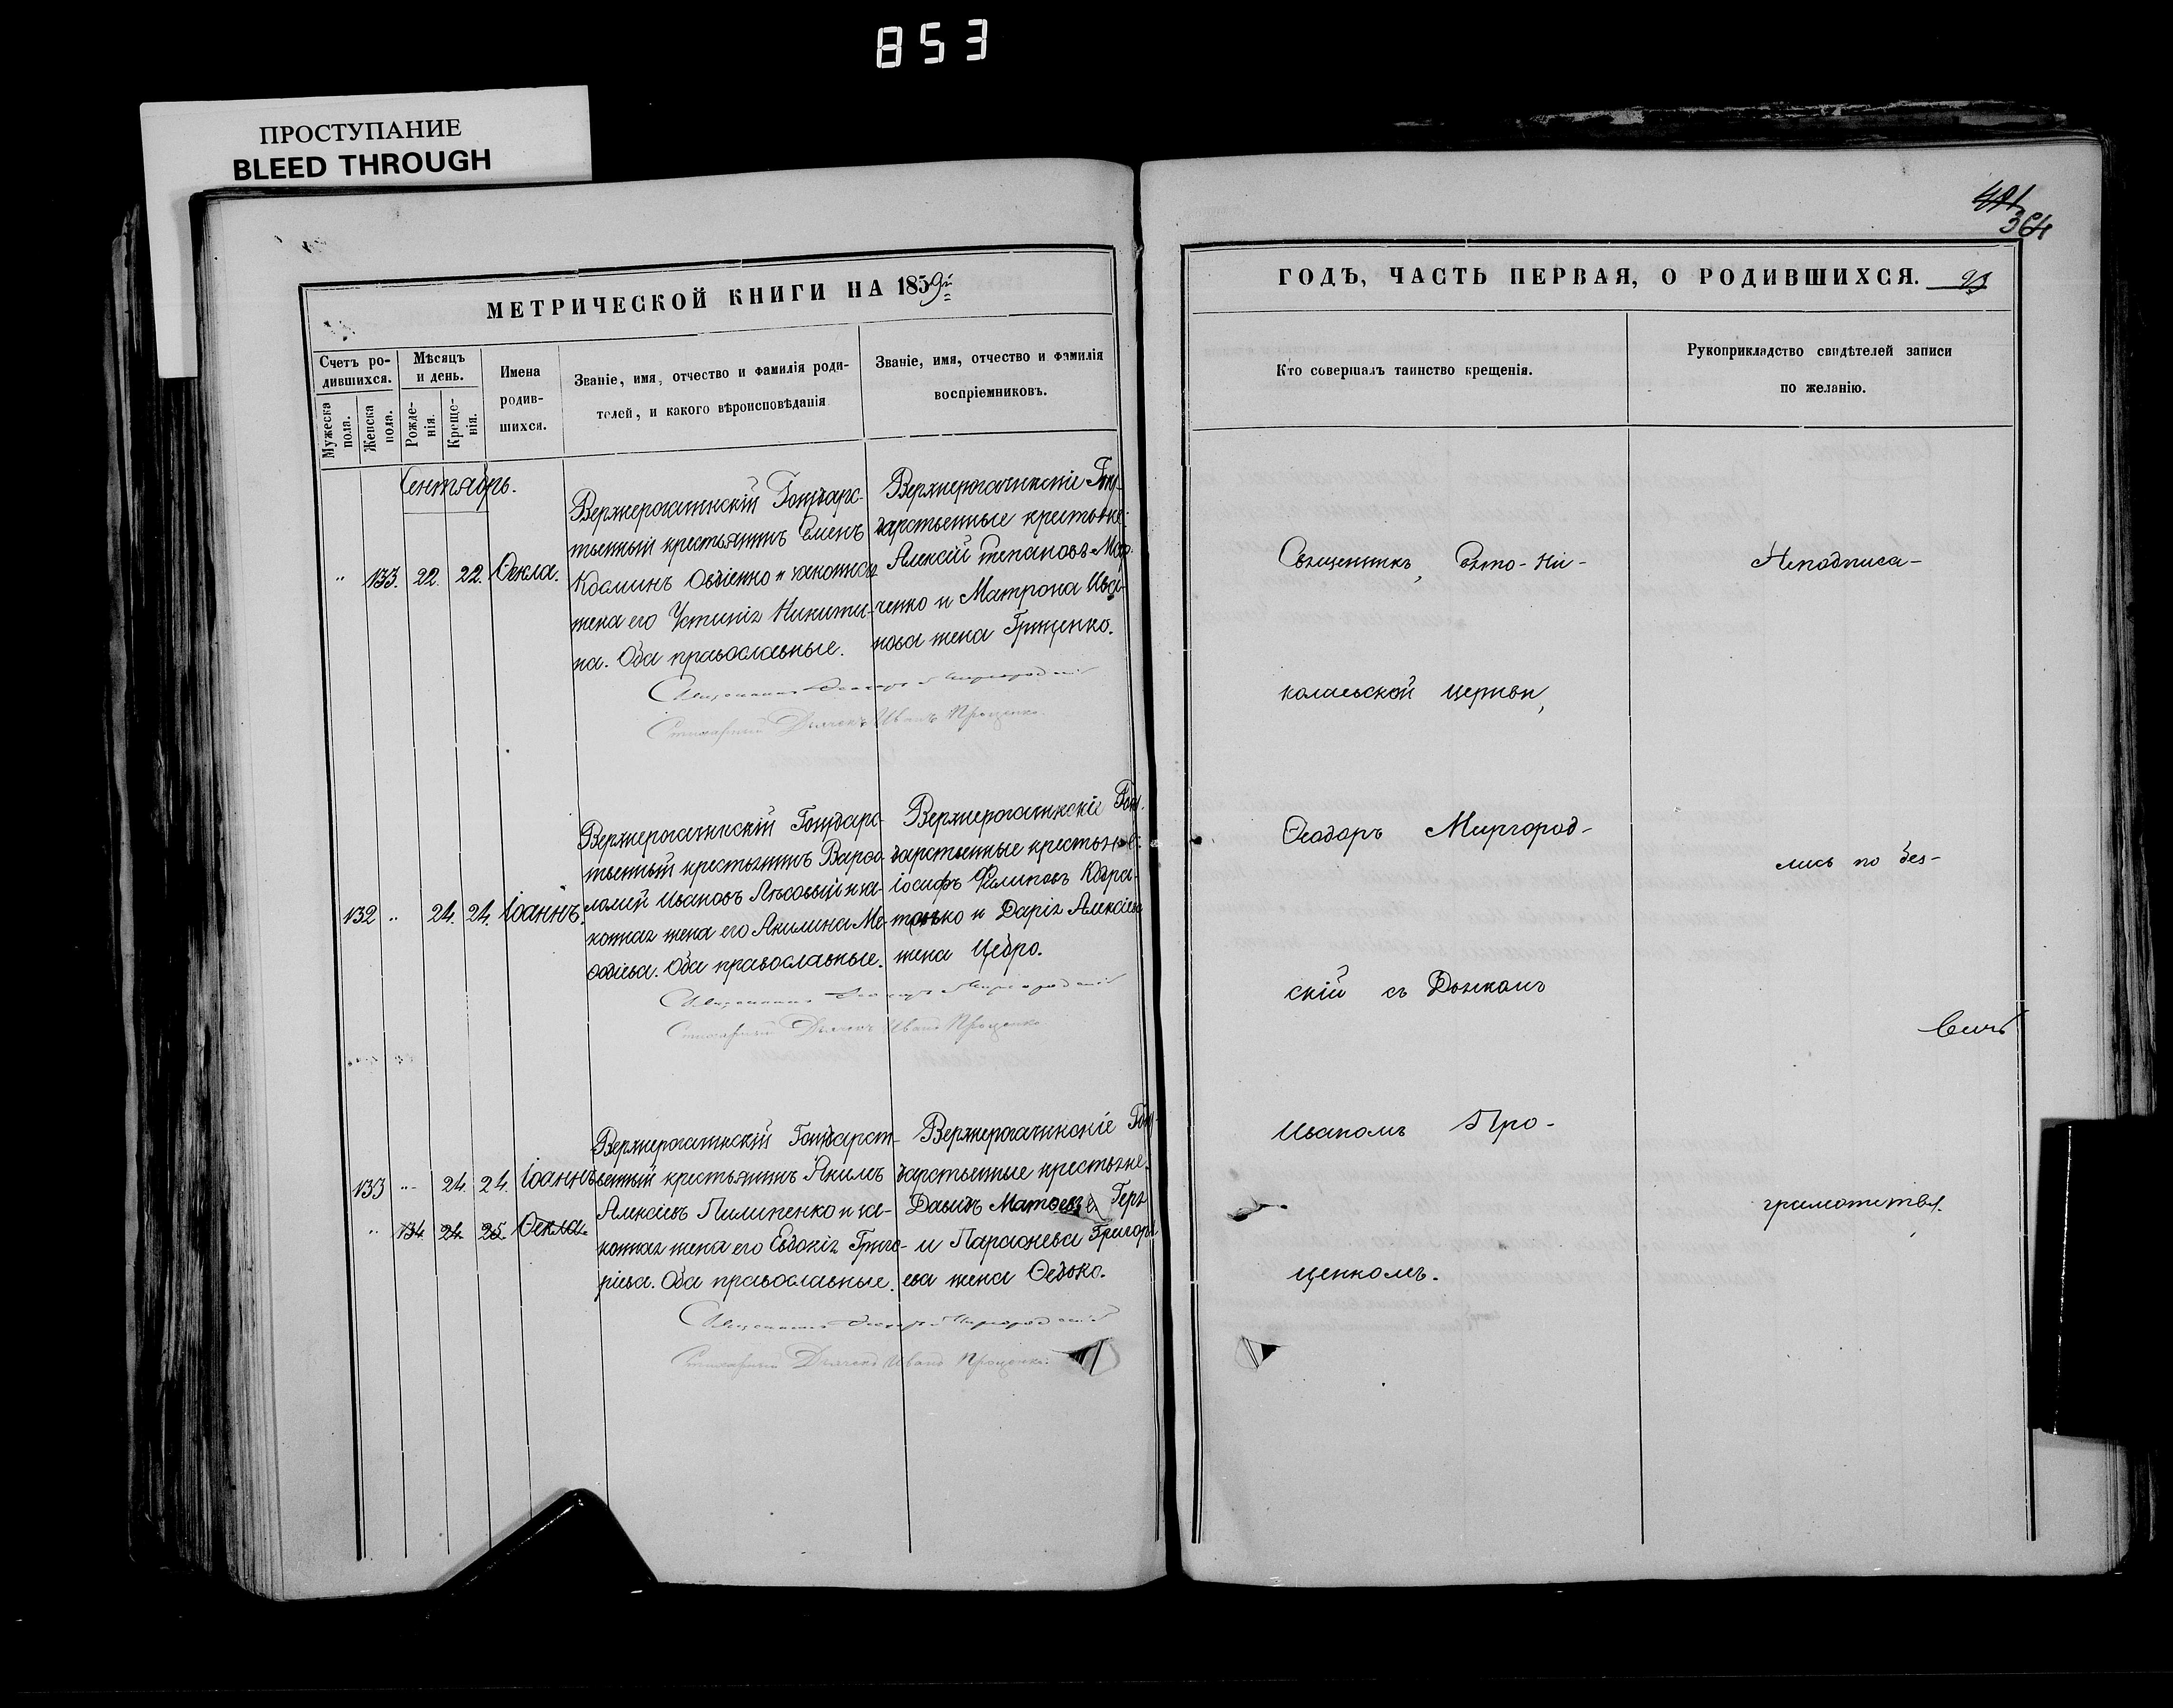 853
ПРОСТУПАНИЕ
BLEED THROUGH
364
МЕТРИЧЕСКОЙ КНИГИ НА 1859й
Счетъ ро-
дившихся.
Мужеска
пола.
Женска
пола.
Мѣсяцъ
и день.
Рожде-
нія.
Креще-
нія.
Имена
родив-
шихся.
Званіе, имя, отчество и фамилія роди-
телей, и какого вѣроисповѣданія
Званіе, имя, отчество и фамилія
воспріемниковъ.
Сентябрь.
" 133. 22. 22. Ѳекла.
Верхнерогачикскій Государс-
твенный крестьянинъ Семенъ
Козминъ и законная
жена его Устинія Никити-
на. Оба православные.
Верхнерогачикскіе Госу-
дарственные крестьяне:
Алексій Степановъ Мар-
ченко и Матрона Ива-
нова жена Грищенко.
Священникъ Ѳеодоръ Миргородскій
Стихарный Дьячекъ Иванъ Проценко.
132 " 24. 24. Іоаннъ.
Верхнерогачикскій Государс-
твенный крестьянинъ Варѳо-
ломей Ивановъ Лѣсовый и за-
конная жена его Акилина Ме-
ѳодіева. Оба православные.
Верхнерогачикскіе Госу-
дарственные крестьяне:
Іосифъ Филиповъ
и Дарія Алексіева
жена Цебро.
Священникъ Ѳеодоръ Миргородскій
Стихарный Дьячекъ Иванъ Проценко
133 " 24. 24. Іоаннъ
" 134. 24. 25. Ѳекла.
Верхнерогачикскій Государст-
венный крестьянинъ Якимъ
Алексіевъ Пилипенко и за-
конная жена его Евдокія Григо-
ріева. Оба православные.
Верхнерогачикскіе Госу-
дарственные крестьяне.
Давидъ Матѳеевъ
и Параскева Григорі-
ева жена Ѳедько.
Священникъ Ѳеодоръ Миргородскій
Стихарный Дьячекъ Иванъ Проценко.
ГОДЪ, ЧАСТЬ ПЕРВАЯ, О РОДИВШИХСЯ.
Кто совершалъ таинство крещенія.
Рукоприкладство свидѣтелей записи
по желанію.
Священникъ, Свято-Ни-
колаевской церкви,
Ѳеодоръ Миргород-
скій съ Дьячкомъ
Иваномъ Про-
ценкомъ.
Неподписа-
лись по без-
грамотству.